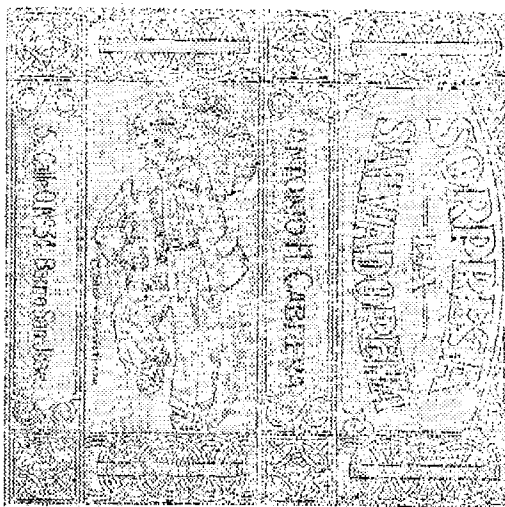 SORPRESA
LA
SALVADOREÑA
ANTONIO H. CABRERA
Calle 34 Barrio San Jose